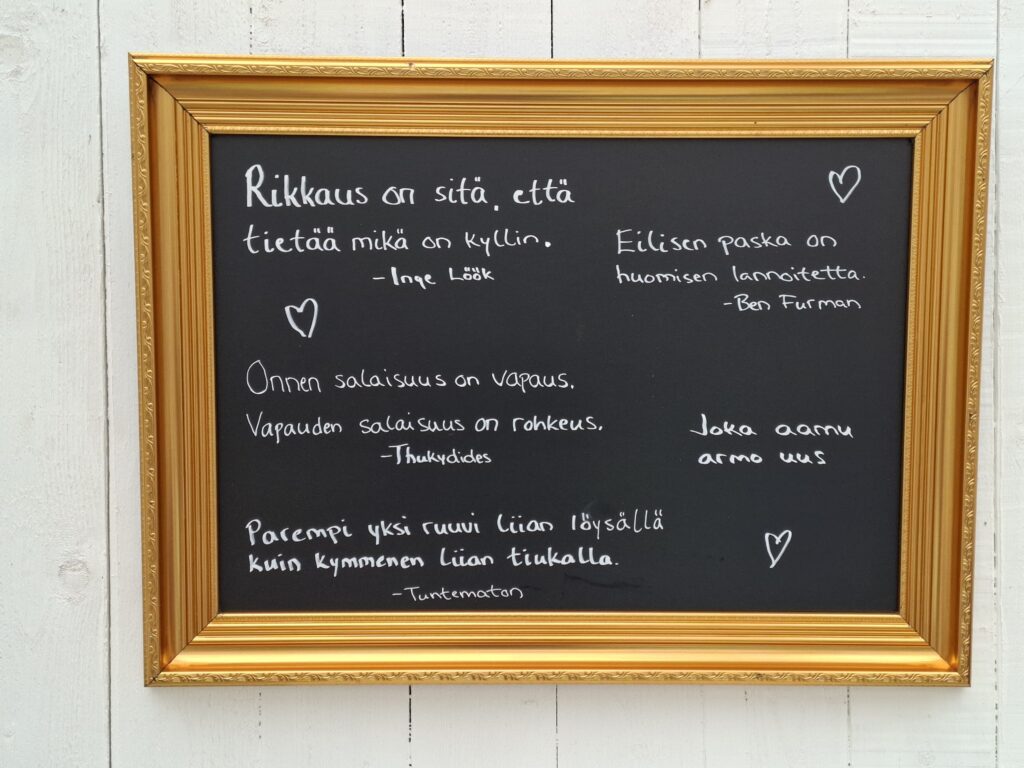 Rikkaus on sitä, että
tietää mikä on kyllin.
-Inge Löök
Eilisen paska on
huomisen lannoitetta.
-Ben Furman
Onnen salaisuus on vapaus.
Vapauden salaisuus on rohkeus.
-Thukydides
Joka aamu
armo uus
Parempi yksi ruuvi liian löysällä
kuin kymmenen liian tiukalla.
-Tuntematon